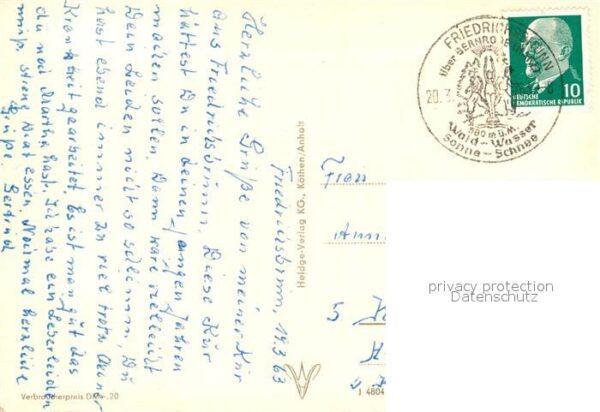 Friedrichsbrunn, 19.3.63
Herzliche Grüße von meiner Kur
aus Friedrichsbrunn. Diese Kur
hättest Du in Deinen jungen Jahren
machen sollen. Dann wäre vielleicht
Dein Leiden nicht so schlimm. Du
hast eben immer zu viel trotz Deiner
Krankheit gearbeitet. Es ist man gut das
du noch Martha hast. Ich habe ein Leberleiden
muß streng Diät essen. Nochmal herzliche
Grüße. Gertrud
Verbraucherpreis DM -,20
Heldge-Verlag KG., Köthen/Anhalt
J 4804
Frau
5
FRIEDRICHSBRUNN
über BERNRODE
20.3.
580 m ü.M.
Wald-Wasser
Sonne-Schnee
10
DEUTSCHE
DEMOKRATISCHE REPUBLIK
privacy protection
Datenschutz